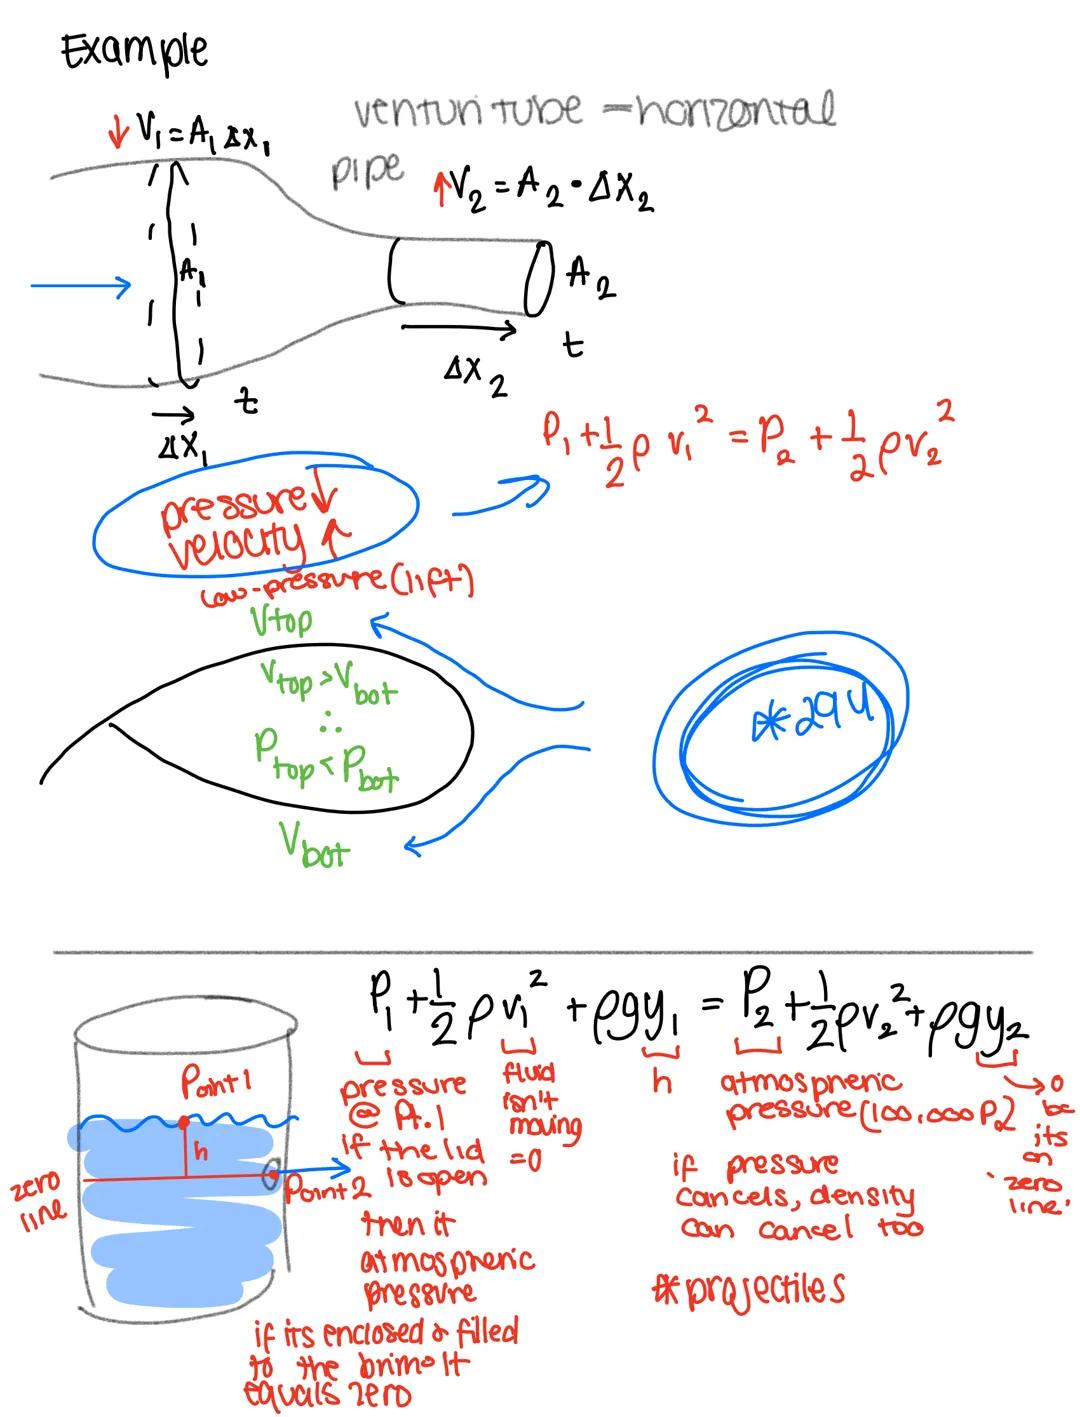 Example
venturi tube - horizontal
pipe
↓ V₁ = A₁ Δx₁
↑V₂ = A₂ • Δx₂
A₁
A₂
t
Δx₂
t
Δx₁
P₁ + 1/2 ρ v₁² = P₂ + 1/2 ρv₂²
pressure↓
velocity ↑
low-pressure (lift)
Vtop
Vtop > Vbot
∴
Ptop < Pbot
Vbot
*294
P₁ + 1/2 ρv₁² + ρgy₁ = P₂ + 1/2 ρv₂² + ρgy₂
Point 1
h
zero
line
Point 2
pressure
@ A.1
if the lid
is open
then it
atmospheric
pressure
if its enclosed & filled
to the brim it
equals zero
fluid
isn't
moving
=0
h
atmospheric
pressure (100,000 Pa)
if pressure
cancels, density
can cancel too
*projectiles
→0
bc
its
on
zero
line.